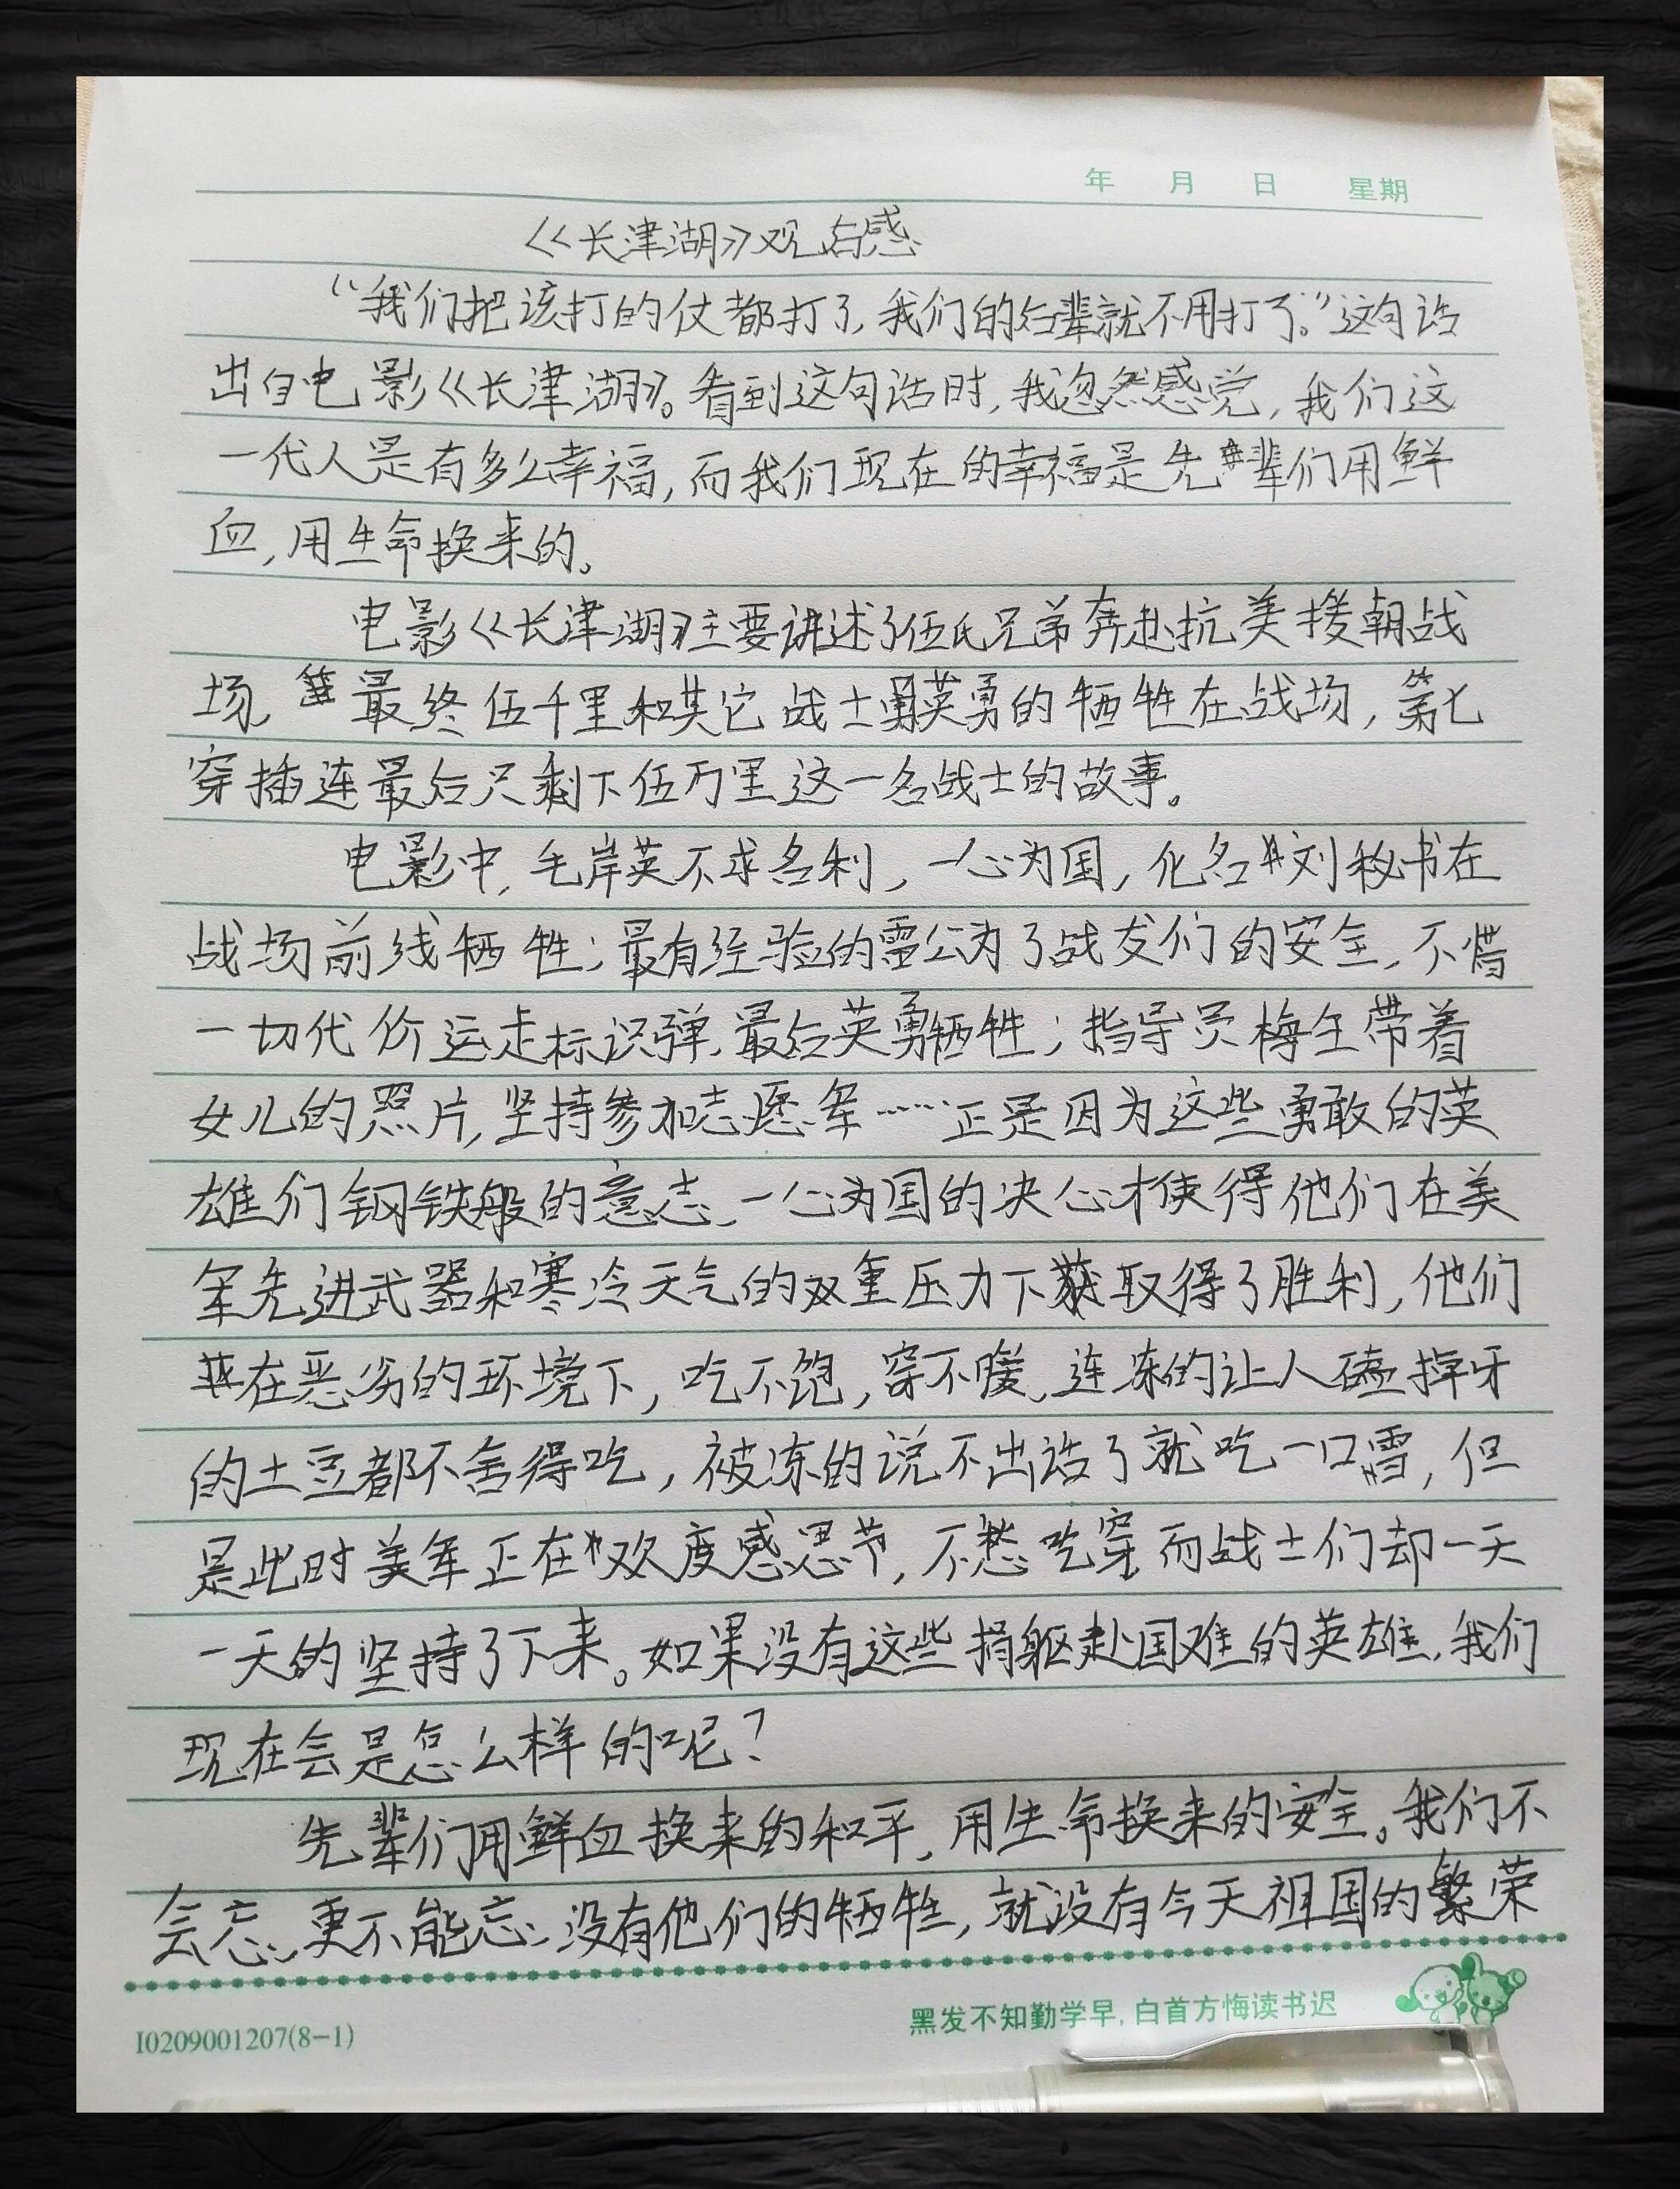 年 月 日 星期
《长津湖》观后感
“我们把该打的仗都打了,我们的后辈就不用打了。”这句话
出自电影《长津湖》。看到这句话时,我忽然感觉,我们这
一代人是有多么幸福,而我们现在的幸福是先辈们用鲜
血,用生命换来的。
电影《长津湖》主要讲述了伍氏兄弟奔赴抗美援朝战
场,最终伍千里和其它战士英勇的牺牲在战场,第七
穿插连最后只剩下伍万里这一名战士的故事。
电影中,毛岸英不求名利,一心为国,化名刘秘书在
战场前线牺牲;最有经验的雷公为了战友们的安全,不惜
一切代价运走标识弹,最后英勇牺牲;指导员梅生带着
女儿的照片,坚持参加志愿军……正是因为这些勇敢的英
雄们钢铁般的意志,一心为国的决心才使得他们在美
军先进武器和寒冷天气的双重压力下获取得了胜利,他们
在恶劣的环境下,吃不饱,穿不暖,连冻的让人磕掉牙
的土豆都不舍得吃,被冻的说不出话了就吃一口雪,但
是此时美军正在欢度感恩节,不愁吃穿而战士们却一天
一天的坚持了下来。如果没有这些捐躯赴国难的英雄,我们
现在会是怎么样的呢?
先辈们用鲜血换来的和平,用生命换来的安全。我们不
会忘,更不能忘:没有他们的牺牲,就没有今天祖国的繁荣
I0209001207(8-1)
黑发不知勤学早,白首方悔读书迟